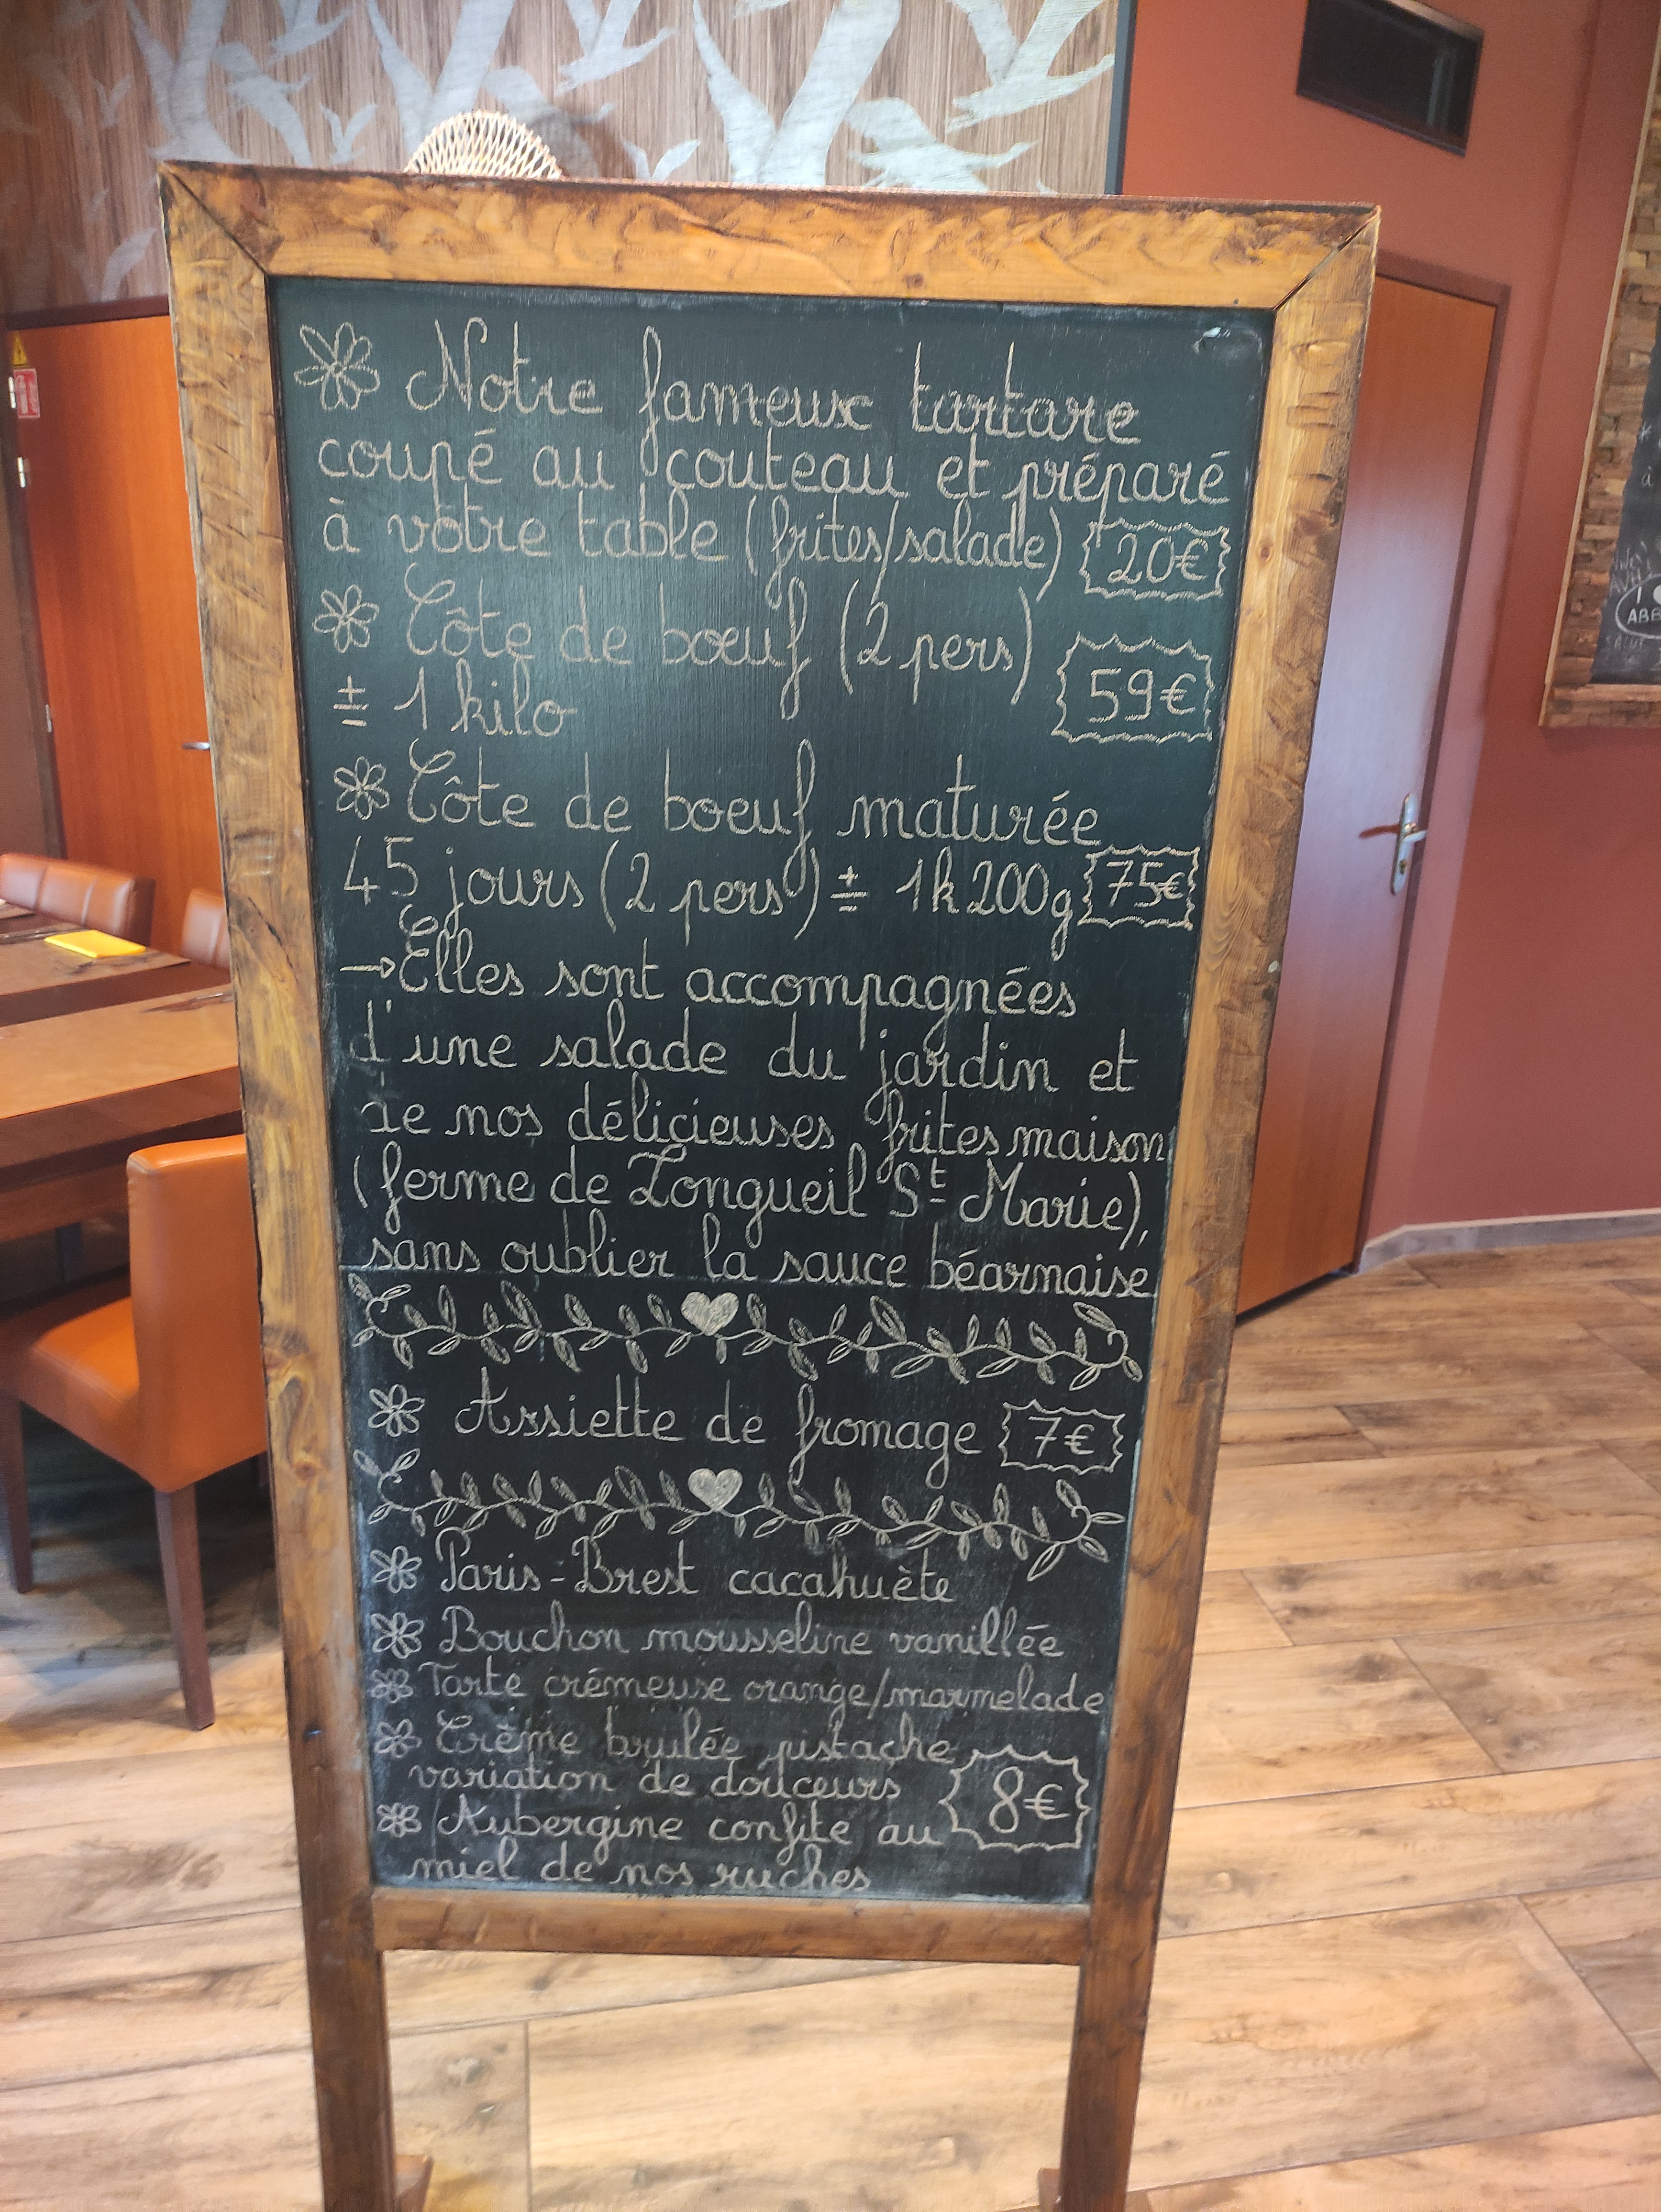 Notre fameux tartare
coupé au couteau et préparé
à votre table (frites/salade) 20€
Côte de boeuf (2 pers)
± 1 kilo 59€
Côte de boeuf maturée
45 jours (2 pers) ± 1k200g 75€
→Elles sont accompagnées
d'une salade du jardin et
de nos délicieuses frites maison
(ferme de Longueil St Marie),
sans oublier la sauce béarnaise
Assiette de fromage 7€
Paris-Brest cacahuète
Bouchon mousseline vanillée
Tarte crémeuse orange/marmelade
Crème brulée pistache
variation de douceurs 8€
Aubergine confite au
miel de nos ruches
ABB